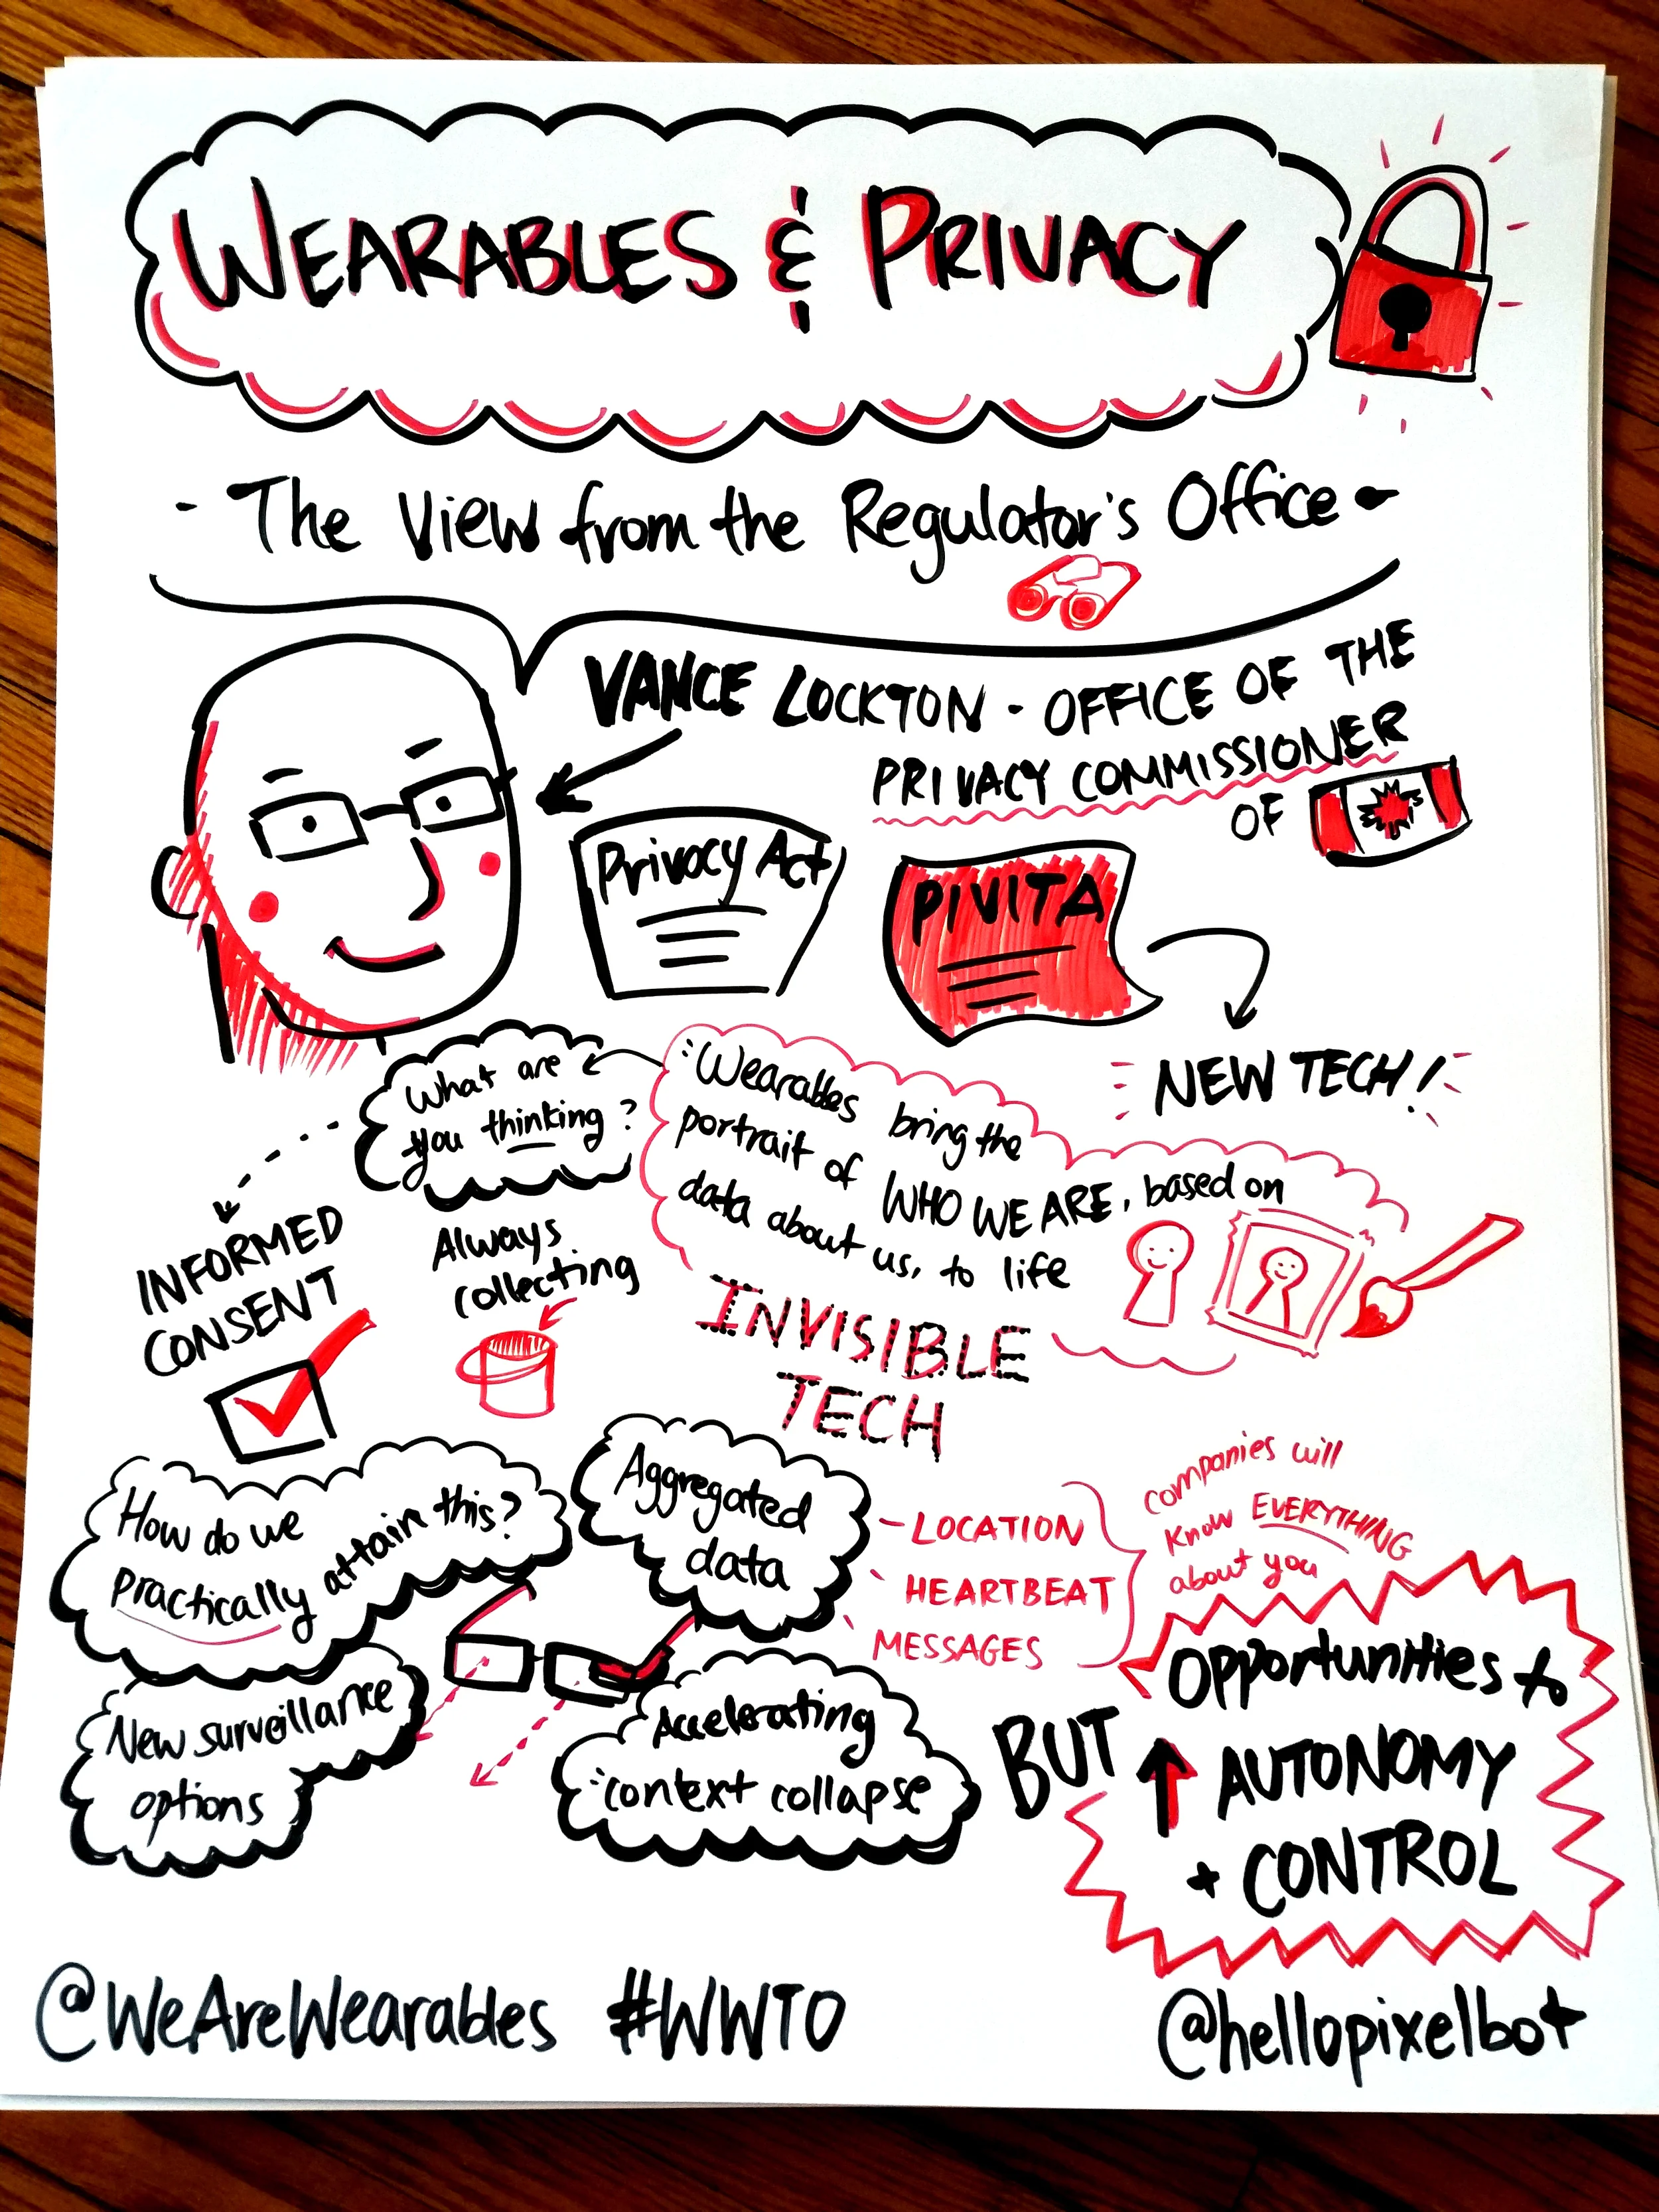 WEARABLES & PRIVACY
- The View from the Regulator's Office -
VANCE LOCKTON - OFFICE OF THE
PRIVACY COMMISSIONER
OF
Privacy Act
PIVITA
NEW TECH!
What are
you thinking?
"Wearables bring the
portrait of WHO WE ARE, based on
data about us, to life
INFORMED
CONSENT
Always
collecting
INVISIBLE
TECH
How do we
practically attain this?
Aggregated
data
- LOCATION
- HEARTBEAT
- MESSAGES
companies will
know EVERYTHING
about you
New surveillance
options
Accelerating
"context collapse
BUT
Opportunities to
↑ AUTONOMY
+ CONTROL
@WeAreWearables #WWTO
@hellopixelbot